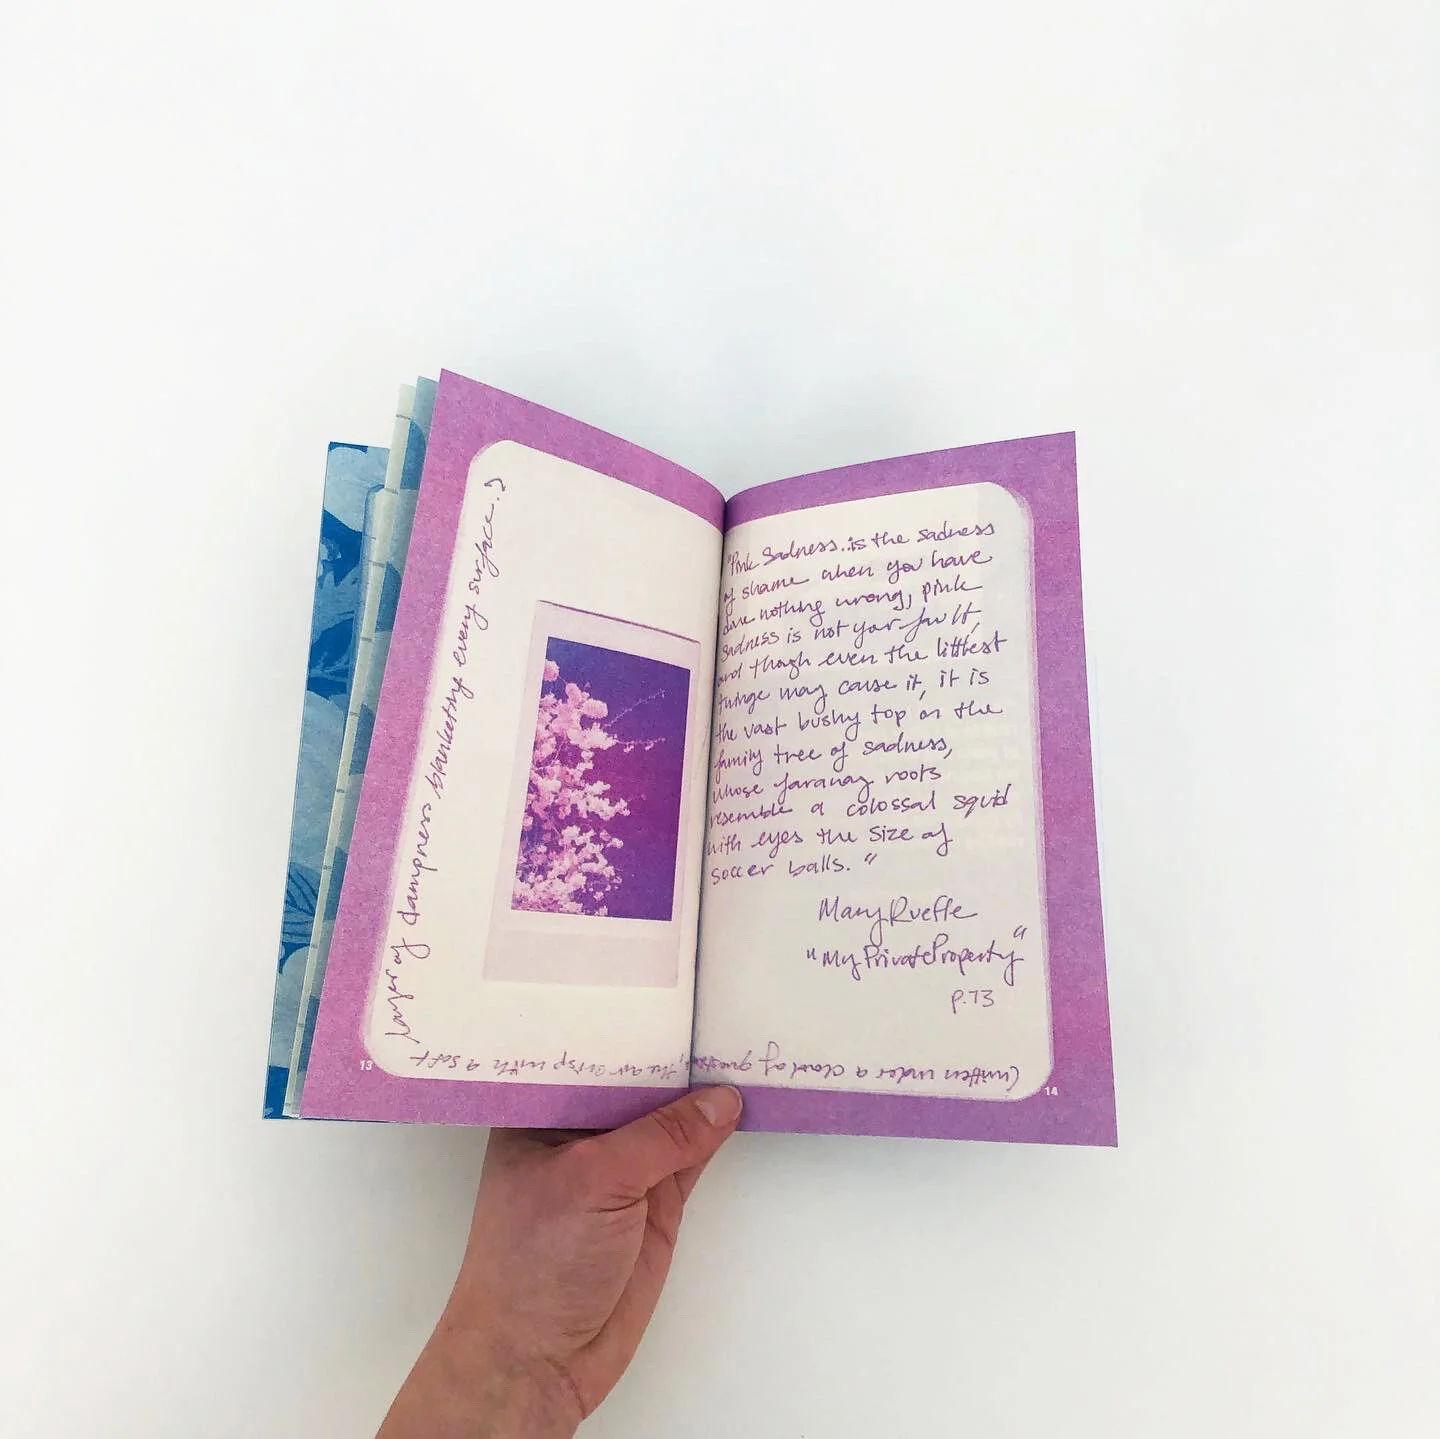 "Pink Sadness is the sadness
of shame when you have
done nothing wrong, pink
sadness is not your fault,
and though even the littlest
twinge may cause it, it is
the vast bushy top on the
family tree of sadness,
whose faraway roots
resemble a colossal squid
with eyes the size of
soccer balls."
Mary Rueffe
"My Private Property"
p.73
(written under a cloud of
the air crisp with a soft
layer of dampness blanketing every surface.)
13
14